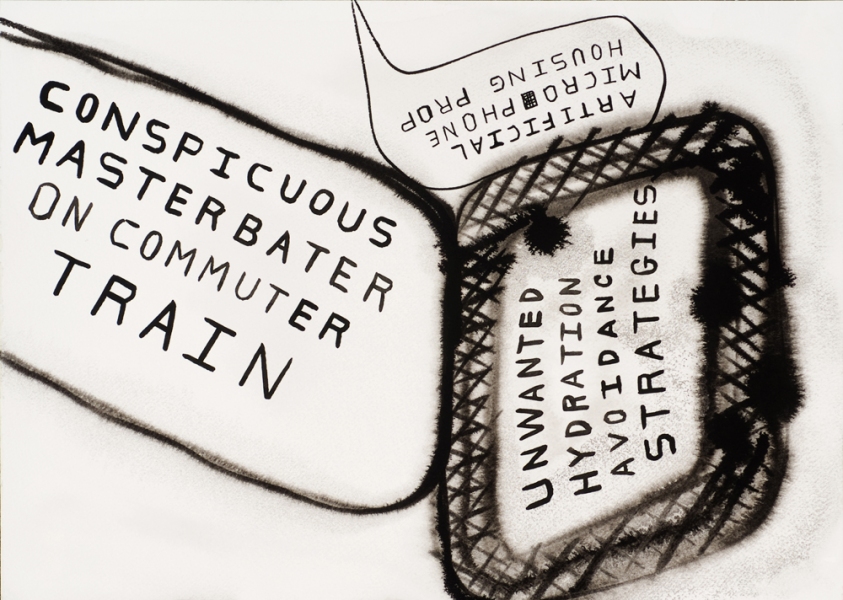 CONSPICUOUS
MASTERBATER
ON COMMUTER
TRAIN
ARTIFICIAL
MICROPHONE
HOUSING PROP
UNWANTED
HYDRATION
AVOIDANCE
STRATEGIES